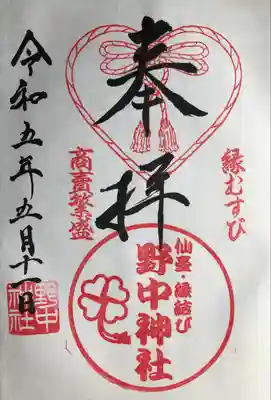 奉拝
縁むすび
商売繁盛
仙臺・縁結び
野中神社
令和五年五月十一日
野中
神社